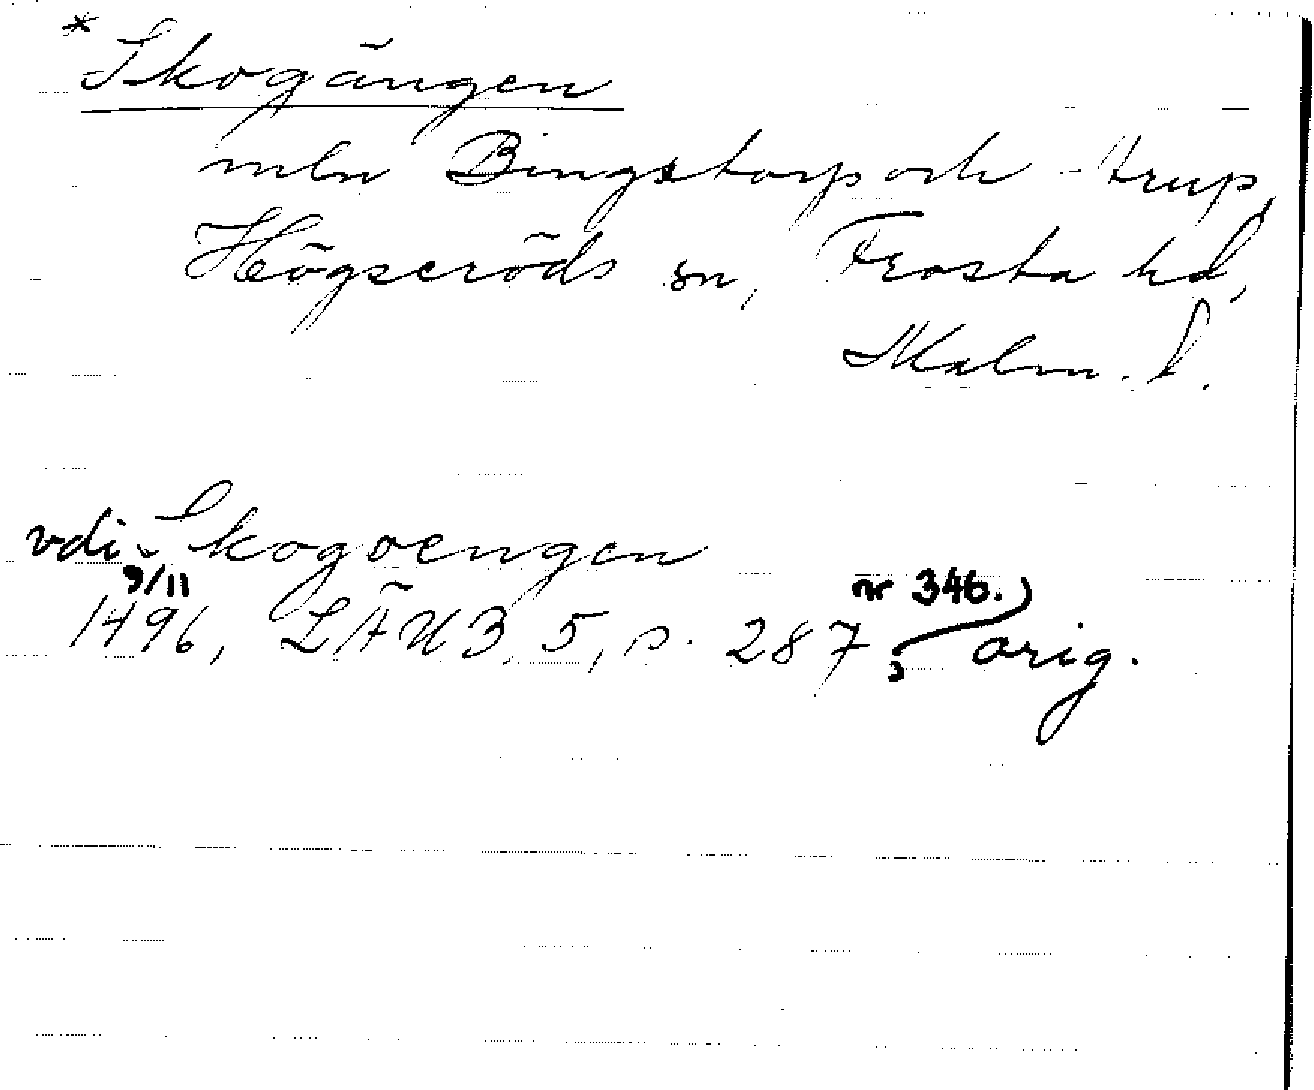 * Skogängen
mln Bingstorp och -trup,
Högseröds sn, Frosta hd,
Malm. l.
vdi Skogoengen
9/11
1496, LÄUB 5, s. 287, nr 346. orig.